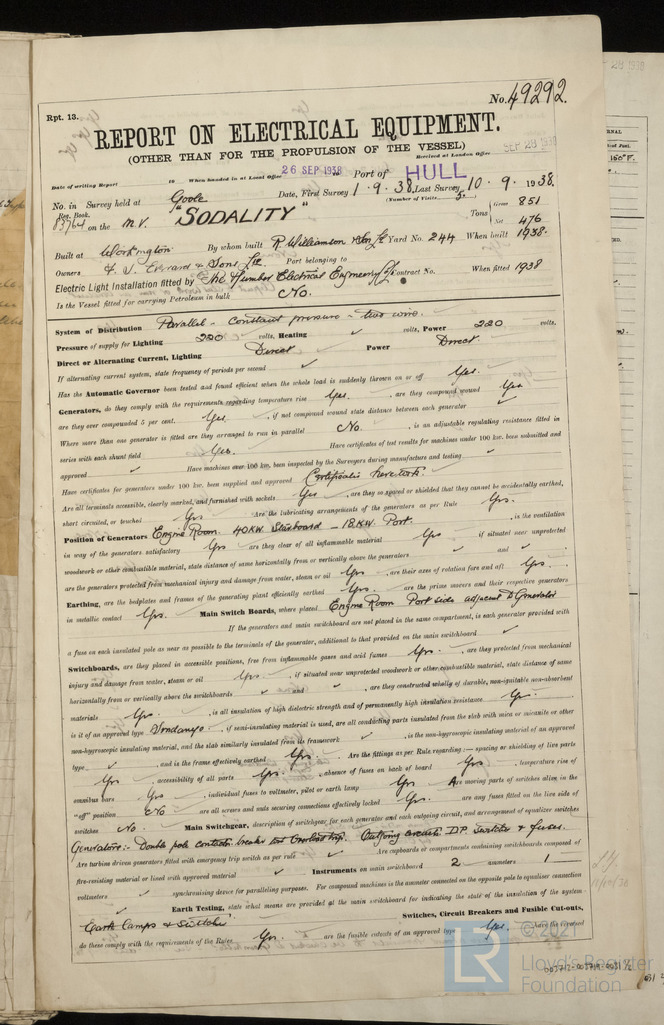 No. 49292.
Rpt. 13.
REPORT ON ELECTRICAL EQUIPMENT.
(OTHER THAN FOR THE PROPULSION OF THE VESSEL)
Received at London Office SEP 28 1938
Date of writing Report 19 When handed in at Local Office 26 SEP 1938 Port of HULL
No. in Survey held at Goole Date, First Survey 1.9.38, Last Survey 10.9.1938.
Reg. Book. (Number of Visits 5.)
83764 on the M.V. "SODALITY" Tons Gross 851
Net 476
Built at Workington By whom built R. Williamson & Son Ltd Yard No. 244 When built 1938.
Owners F. T. Everard & Sons Ltd Port belonging to
Electric Light Installation fitted by The Humber Electrical Engineering Co Contract No. When fitted 1938
Is the Vessel fitted for carrying Petroleum in bulk No.
System of Distribution Parallel - constant pressure - two wire.
Pressure of supply for Lighting 220 volts, Heating ✓ volts, Power 220 volts.
Direct or Alternating Current, Lighting Direct Power Direct.
If alternating current system, state frequency of periods per second ✓
Has the Automatic Governor been tested and found efficient when the whole load is suddenly thrown on or off Yes.
Generators, do they comply with the requirements regarding temperature rise Yes. , are they compound wound Yes
are they over compounded 5 per cent. Yes. , if not compound wound state distance between each generator ✓
Where more than one generator is fitted are they arranged to run in parallel No. , is an adjustable regulating resistance fitted in
series with each shunt field Yes. Have certificates of test results for machines under 100 kw. been submitted and
approved ✓ Have machines over 100 kw. been inspected by the Surveyors during manufacture and testing ✓
Have certificates for generators under 100 kw. been supplied and approved Certificates herewith.
Are all terminals accessible, clearly marked, and furnished with sockets Yes , are they so spaced or shielded that they cannot be accidentally earthed,
short circuited, or touched Yes Are the lubricating arrangements of the generators as per Rule Yes.
Position of Generators Engine Room. 40 KW Starboard - 18 KW Port. , is the ventilation
in way of the generators satisfactory Yes are they clear of all inflammable material Yes if situated near unprotected
woodwork or other combustible material, state distance of same horizontally from or vertically above the generators ✓ and ✓ ,
are the generators protected from mechanical injury and damage from water, steam or oil Yes , are their axes of rotation fore and aft Yes.
Earthing, are the bedplates and frames of the generating plant efficiently earthed Yes. are the prime movers and their respective generators
in metallic contact Yes. Main Switch Boards, where placed Engine Room Port side adjacent to Generator
If the generators and main switchboard are not placed in the same compartment, is each generator provided with
a fuse on each insulated pole as near as possible to the terminals of the generator, additional to that provided on the main switchboard ✓
Switchboards, are they placed in accessible positions, free from inflammable gases and acid fumes Yes. , are they protected from mechanical
injury and damage from water, steam or oil Yes , if situated near unprotected woodwork or other combustible material, state distance of same
horizontally from or vertically above the switchboards ✓ and ✓ , are they constructed wholly of durable, non-ignitable non-absorbent
materials Yes , is all insulation of high dielectric strength and of permanently high insulation resistance Yes.
is it of an approved type Sindanyo , if semi-insulating material is used, are all conducting parts insulated from the slab with mica or micanite or other
non-hygroscopic insulating material, and the slab similarly insulated from its framework ✓ , is the non-hygroscopic insulating material of an approved
type ✓ , and is the frame effectively earthed Yes. Are the fittings as per Rule regarding:— spacing or shielding of live parts
Yes , accessibility of all parts Yes. , absence of fuses on back of board Yes , temperature rise of
omnibus bars Yes , individual fuses to voltmeter, pilot or earth lamp Yes Are moving parts of switches alive in the
"off" position No are all screws and nuts securing connections effectively locked Yes. are any fuses fitted on the live side of
switches No. Main Switchgear, description of switchgear for each generator and each outgoing circuit, and arrangement of equalizer switches
Generators: Double pole contactor breaker and overload trip. Outgoing circuits D.P. switches & fuses.
Are turbine driven generators fitted with emergency trip switch as per rule ✓ Are cupboards or compartments containing switchboards composed of
fire-resisting material or lined with approved material ✓ Instruments on main switchboard 2 ammeters 1
voltmeters ✓ synchronising device for paralleling purposes. For compound machines is the ammeter connected on the opposite pole to equaliser connection
✓ Earth Testing, state what means are provided at the main switchboard for indicating the state of the insulation of the system
Earth Lamps & Switches Switches, Circuit Breakers and Fusible Cut-outs,
do these comply with the requirements of the Rules Yes. are the fusible cutouts of an approved type Yes. have the reversed
© 2021
Lloyd's Register
Foundation
LR